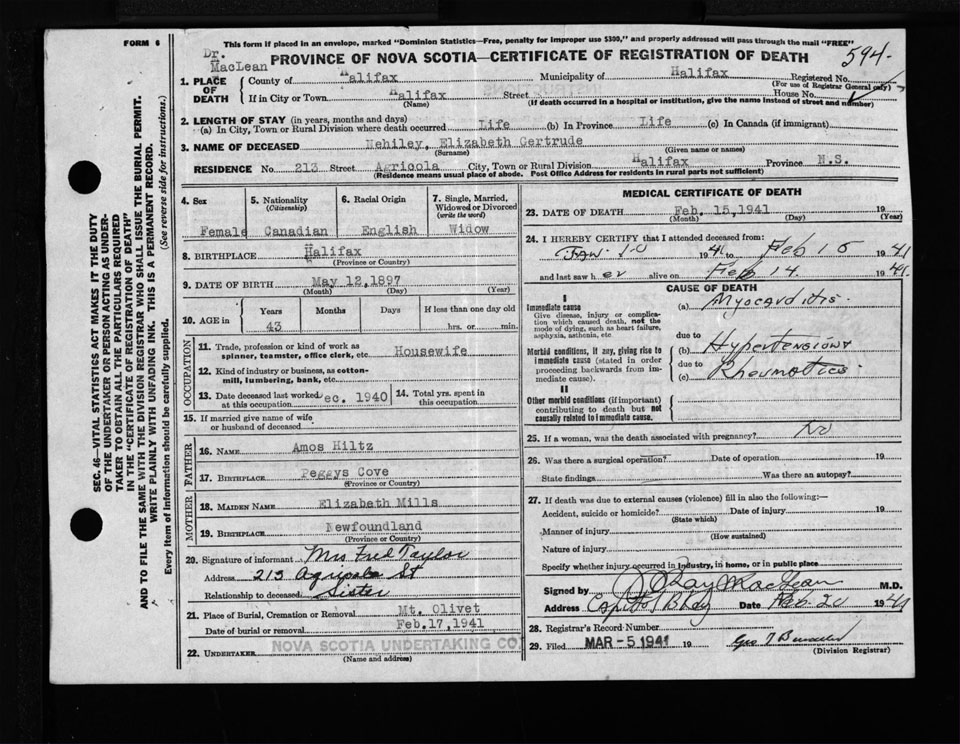 This form if placed in an envelope, marked "Dominion Statistics—Free, penalty for improper use $300," and properly addressed will pass through the mail "FREE"
FORM 6
PROVINCE OF NOVA SCOTIA—CERTIFICATE OF REGISTRATION OF DEATH
594
Dr.
MacLean
1. PLACE OF DEATH
County of Halifax Municipality of Halifax Registered No.
(For use of Registrar General only)
If in City or Town Halifax Street House No.
(Name) (If death occurred in a hospital or institution, give the name instead of street and number)
2. LENGTH OF STAY (in years, months and days)
(a) In City, Town or Rural Division where death occurred Life (b) In Province Life (c) In Canada (if immigrant)
3. NAME OF DECEASED Mehiley, Elizabeth Gertrude
(Surname) (Given name or names)
RESIDENCE No. 213 Street Agricola City, Town or Rural Division Halifax Province N.S.
(Residence means usual place of abode. Post Office Address for residents in rural parts not sufficient)
4. Sex
Female
5. Nationality
(Citizenship)
Canadian
6. Racial Origin
English
7. Single, Married,
Widowed or Divorced
(write the word)
Widow
8. BIRTHPLACE Halifax
(Province or Country)
9. DATE OF BIRTH May 12, 1897
(Month) (Day) (Year)
10. AGE in Years Months Days If less than one day old
43 hrs. or min.
OCCUPATION
11. Trade, profession or kind of work as
spinner, teamster, office clerk, etc. Housewife
12. Kind of industry or business, as cotton-
mill, lumbering, bank, etc.
13. Date deceased last worked
at this occupation ec. 1940
14. Total yrs. spent in
this occupation
15. If married give name of wife
or husband of deceased
FATHER
16. NAME Amos Hiltz
17. BIRTHPLACE Peggys Cove
(Province or Country)
MOTHER
18. MAIDEN NAME Elizabeth Mills
19. BIRTHPLACE Newfoundland
(Province or Country)
20. Signature of informant Mrs Fred Taylor
Address 213 Agricola St
Relationship to deceased Sister
21. Place of Burial, Cremation or Removal Mt. Olivet
Date of burial or removal Feb. 17, 1941
22. UNDERTAKER NOVA SCOTIA UNDERTAKING CO.
(Name and address)
MEDICAL CERTIFICATE OF DEATH
23. DATE OF DEATH Feb. 15, 1941 19
(Month) (Day) (Year)
24. I HEREBY CERTIFY that I attended deceased from:
Jan. 10 1941 to Feb 15 1941
and last saw her alive on Feb 14 1941
CAUSE OF DEATH
I
Immediate cause
Give disease, injury or complica-
tion which caused death, not the
mode of dying, such as heart failure,
asphyxia, asthenia, etc.
(a) Myocarditis.
due to
Morbid conditions, if any, giving rise to
immediate cause (stated in order
proceeding backwards from im-
mediate cause).
(b) Hypertension &
due to
(c) Rheumatics.
II
Other morbid conditions (if important)
contributing to death but not
causally related to immediate cause.
25. If a woman, was the death associated with pregnancy? No
26. Was there a surgical operation? Date of operation 19
State findings Was there an autopsy?
27. If death was due to external causes (violence) fill in also the following:—
Accident, suicide or homicide? Date of injury 19
(State which)
Manner of injury
(How sustained)
Nature of injury
Specify whether injury occurred in Industry, in home, or in public place
Signed by J. Ray MacLean M.D.
Address Capitol Bldg Date Feb. 20 1941
28. Registrar's Record Number
29. Filed MAR - 5 1941 19 Geo
(Division Registrar)
SEC. 46—VITAL STATISTICS ACT MAKES IT THE DUTY
OF THE UNDERTAKER OR PERSON ACTING AS UNDER-
TAKER TO OBTAIN ALL THE PARTICULARS REQUIRED
IN THE "CERTIFICATE OF REGISTRATION OF DEATH"
AND TO FILE THE SAME WITH THE DIVISION REGISTRAR WHO SHALL ISSUE THE BURIAL PERMIT.
WRITE PLAINLY WITH UNFADING INK. THIS IS A PERMANENT RECORD.
Every item of information should be carefully supplied. (See reverse side for instructions.)